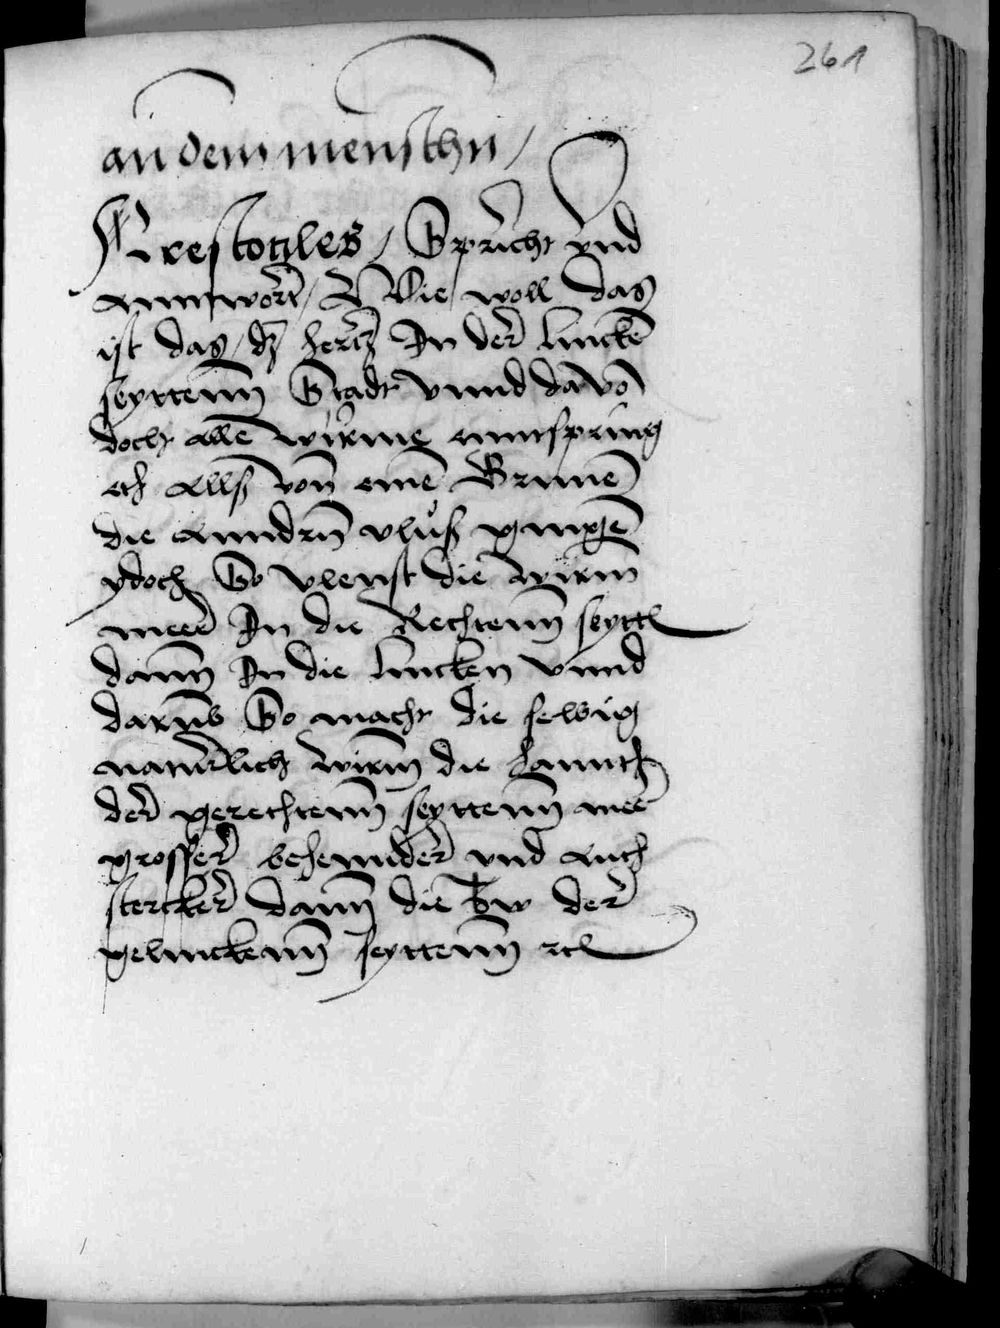 261
an dem menschn /
Arestotiles / Spricht vnd
anntwort / Wie woll das
ist das / dz hertz In der lincken
seyttenn Stadt vnnd dauon
doch alle wirme enntspring
etc alls von eine Brunē
die anndrn vluß gingē
ydoch So vleust die wirm
meer In die Rechtenn seytt
dann In die lincken vnnd
darumb So macht die selbig
naturlich wirm die hannth
der gerechtenn seyttenn meer
grosser behennder vnd auch
stercker dann die bw der
gelinckenn seyttenn etc